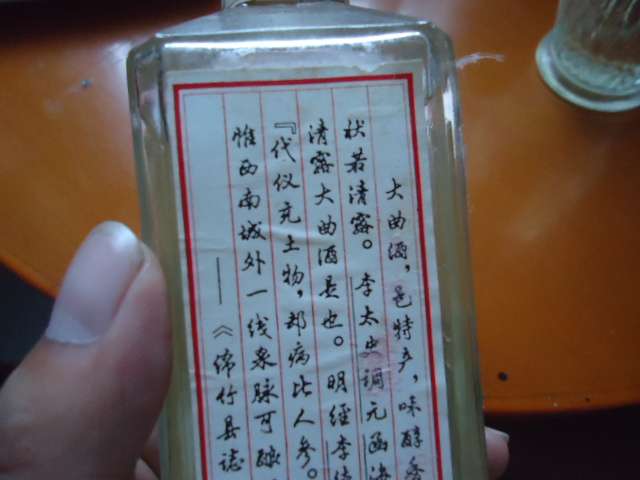 大曲酒，邑特产，味醇香
状若清露。李太史调元函海
清露大曲酒是也。明经李
『代仪充土物，却病比人参。
惟西南城外一线泉脉可酿
——《绵竹县志